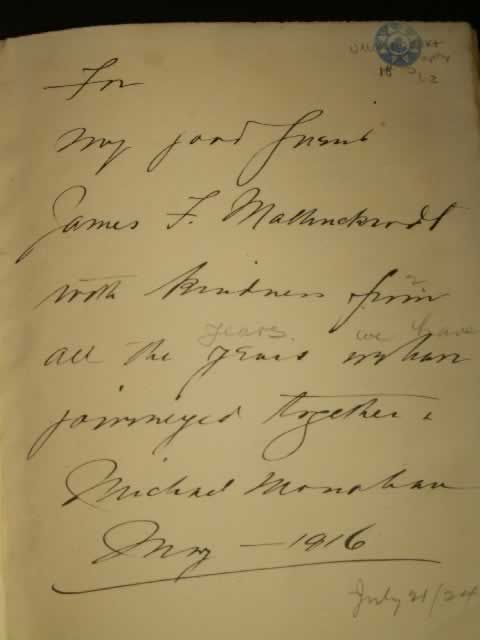 For
my good friend
James F. Mallinckrodt
with kindness from
years. we have
all the years we have
journeyed together.
Michael Monahan
May — 1916
July 21/24